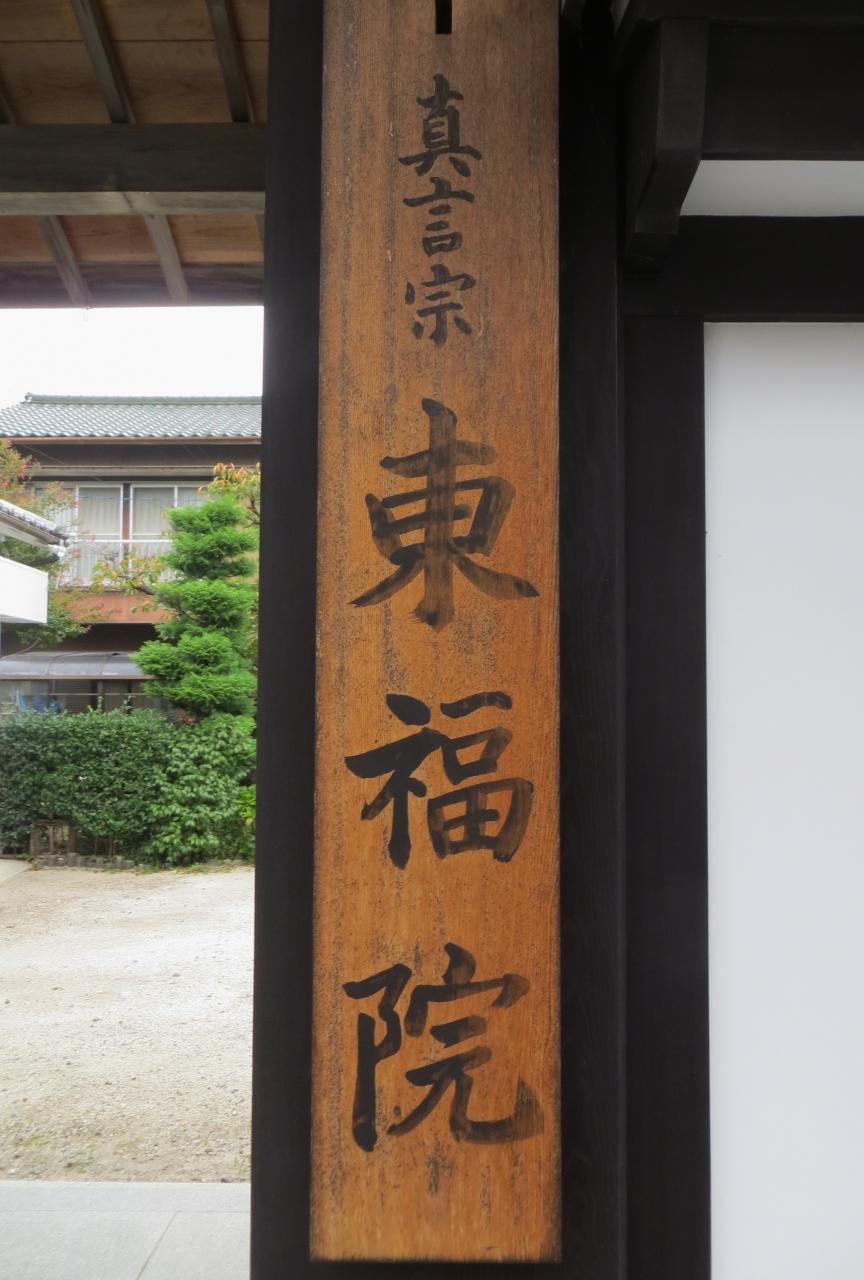 真言宗東福院